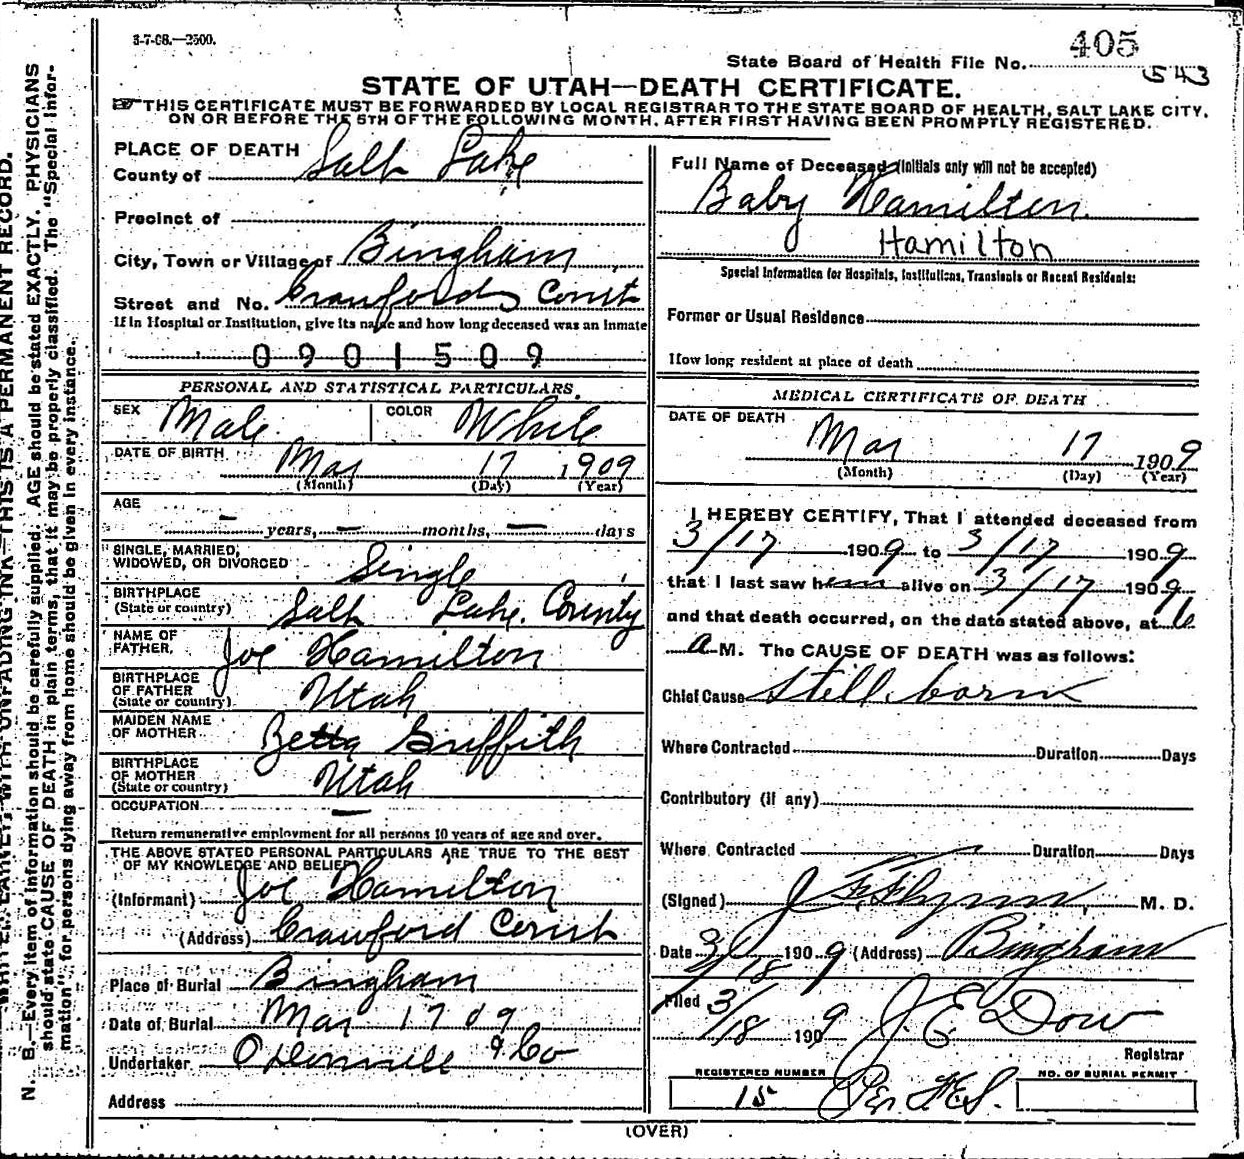 3-7-08.—2500.
405
State Board of Health File No.
543
STATE OF UTAH—DEATH CERTIFICATE.
☞THIS CERTIFICATE MUST BE FORWARDED BY LOCAL REGISTRAR TO THE STATE BOARD OF HEALTH, SALT LAKE CITY,
ON OR BEFORE THE 5TH OF THE FOLLOWING MONTH, AFTER FIRST HAVING BEEN PROMPTLY REGISTERED.
PLACE OF DEATH
County of Salt Lake
Precinct of
City, Town or Village of Bingham
Street and No. Crawfords Court
If in Hospital or Institution, give its name and how long deceased was an inmate
0901509
PERSONAL AND STATISTICAL PARTICULARS.
SEX Male COLOR White
DATE OF BIRTH Mar 17 1909
(Month) (Day) (Year)
AGE
— years, — months, — days
SINGLE, MARRIED,
WIDOWED, OR DIVORCED Single
BIRTHPLACE
(State or country) Salt Lake County
NAME OF
FATHER, Joe Hamilton
BIRTHPLACE
OF FATHER
(State or country) Utah
MAIDEN NAME
OF MOTHER Betta Griffith
BIRTHPLACE
OF MOTHER
(State or country) Utah
OCCUPATION —
Return remunerative employment for all persons 10 years of age and over.
THE ABOVE STATED PERSONAL PARTICULARS ARE TRUE TO THE BEST
OF MY KNOWLEDGE AND BELIEF
(Informant) Joe Hamilton
(Address) Crawford Court
Place of Burial Bingham
Date of Burial Mar 17 09
Undertaker O'Donnell & Co
Address
Full Name of Deceased (Initials only will not be accepted)
Baby Hamilton
Hamilton
Special Information for Hospitals, Institutions, Transients or Recent Residents:
Former or Usual Residence
How long resident at place of death
MEDICAL CERTIFICATE OF DEATH
DATE OF DEATH
Mar 17 1909
(Month) (Day) (Year)
I HEREBY CERTIFY, That I attended deceased from
3/17 1909 to 3/17 1909
that I last saw h alive on 3/17 1909
and that death occurred, on the date stated above, at 6
a M. The CAUSE OF DEATH was as follows:
Chief Cause Still born
Where Contracted Duration Days
Contributory (if any)
Where Contracted Duration Days
(Signed) J F Flynn, M. D.
Date 3/18 1909 (Address) Bingham
Filed 3/18 1909 J. E. Dow
Registrar
REGISTERED NUMBER
15
Per H.E.S.
NO. OF BURIAL PERMIT
(OVER)
WRITE PLAINLY, WITH UNFADING INK—THIS IS A PERMANENT RECORD.
N. B.—Every item of information should be carefully supplied. AGE should be stated EXACTLY. PHYSICIANS
should state CAUSE OF DEATH in plain terms, that it may be properly classified. The "Special Infor-
mation" for persons dying away from home should be given in every instance.